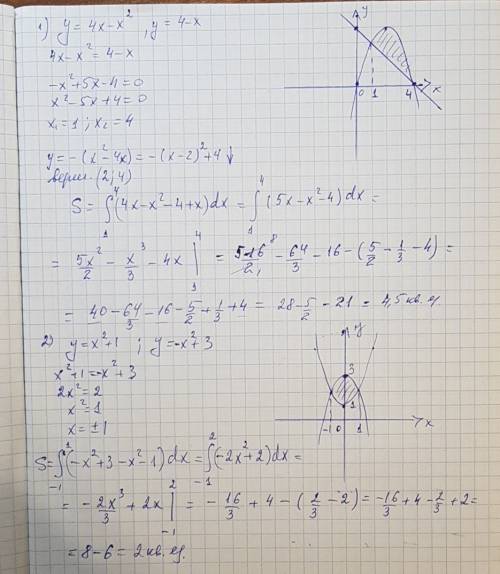 1) y = 4x-x², y = 4-x
4x-x² = 4-x
-x²+5x-4=0
x²-5x+4=0
x₁=1; x₂=4
y
x
0 1 4
y=-(x²-4x)=-(x-2)²+4↓
(2;4)
S= ∫₁⁴(4x-x²-4+x)dx = ∫₁⁴(5x-x²-4)dx =
= 5x²/2 - x³/3 - 4x |₁⁴ = 5·16⁸/2₁ - 64/3 - 16 - (5/2 - 1/3 - 4) =
= 40 - 64/3 - 16 - 5/2 + 1/3 + 4 = 28 - 5/2 - 21 = 4,5 кв. ед
2) y=x²+1 ; y=-x²+3
x²+1=-x²+3
2x²=2
x²=1
x=±1
y
3
1
-1 0 1 x
S= ∫₋₁¹(-x²+3-x²-1)dx = ∫₋₁²(-2x²+2)dx =
= -2x³/3 + 2x |₋₁² = -16/3 + 4 - (2/3 - 2) = -16/3 + 4 - 2/3 + 2 =
= 8-6 = 2 кв. ед.